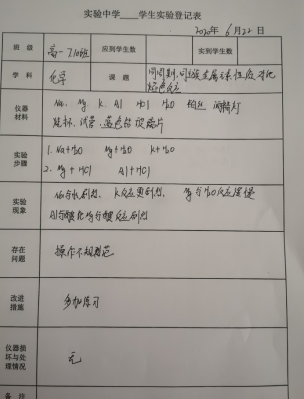 实验中学____学生实验登记表
2020年6月22日
班 级 高一710班 应到学生数 实到学生数
学 科 化学 课 题 同周期、同主族金属元素性质对比
焰色反应
仪器材料 Na、Mg、K、Al HCl H₂O 酒精灯
试管、蓝色钴玻璃片
实验步骤 1. Na+H₂O Mg+H₂O K+H₂O
2. Mg+HCl Al+HCl
实验现象 Na与水剧烈, K反应更剧烈, Mg与H₂O反应缓慢
Al与酸比Mg与酸反应
存在问题 操作不规范
改进措施 多加练习
仪器损坏与处理情况 无
备 注